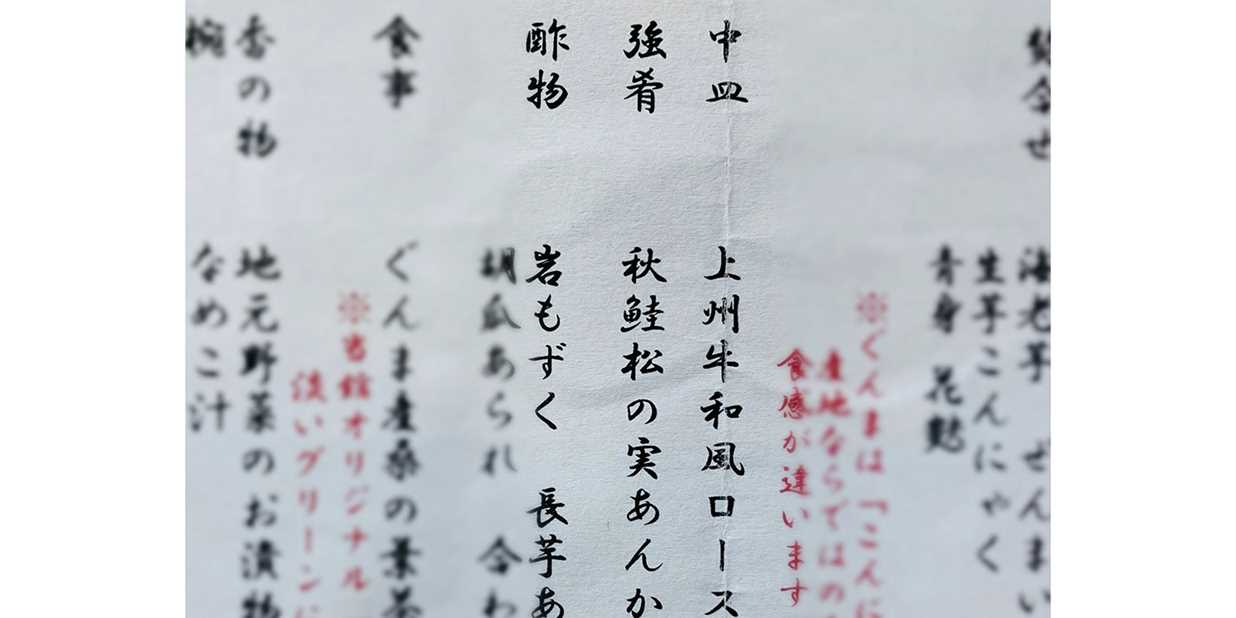 炊合せ 海老芋 ぜんまい
生芋こんにゃく
青身 花麩
※ぐんまは「こんに
産地ならではの
食感が違います
中皿 上州牛和風ロース
強肴 秋鮭松の実あんか
酢物 岩もずく 長芋あ
胡瓜あられ 合わ
食事 ぐんま産桑の葉茶
※当館オリジナル
淡いグリーンに
香の物 地元野菜のお漬物
椀 なめこ汁